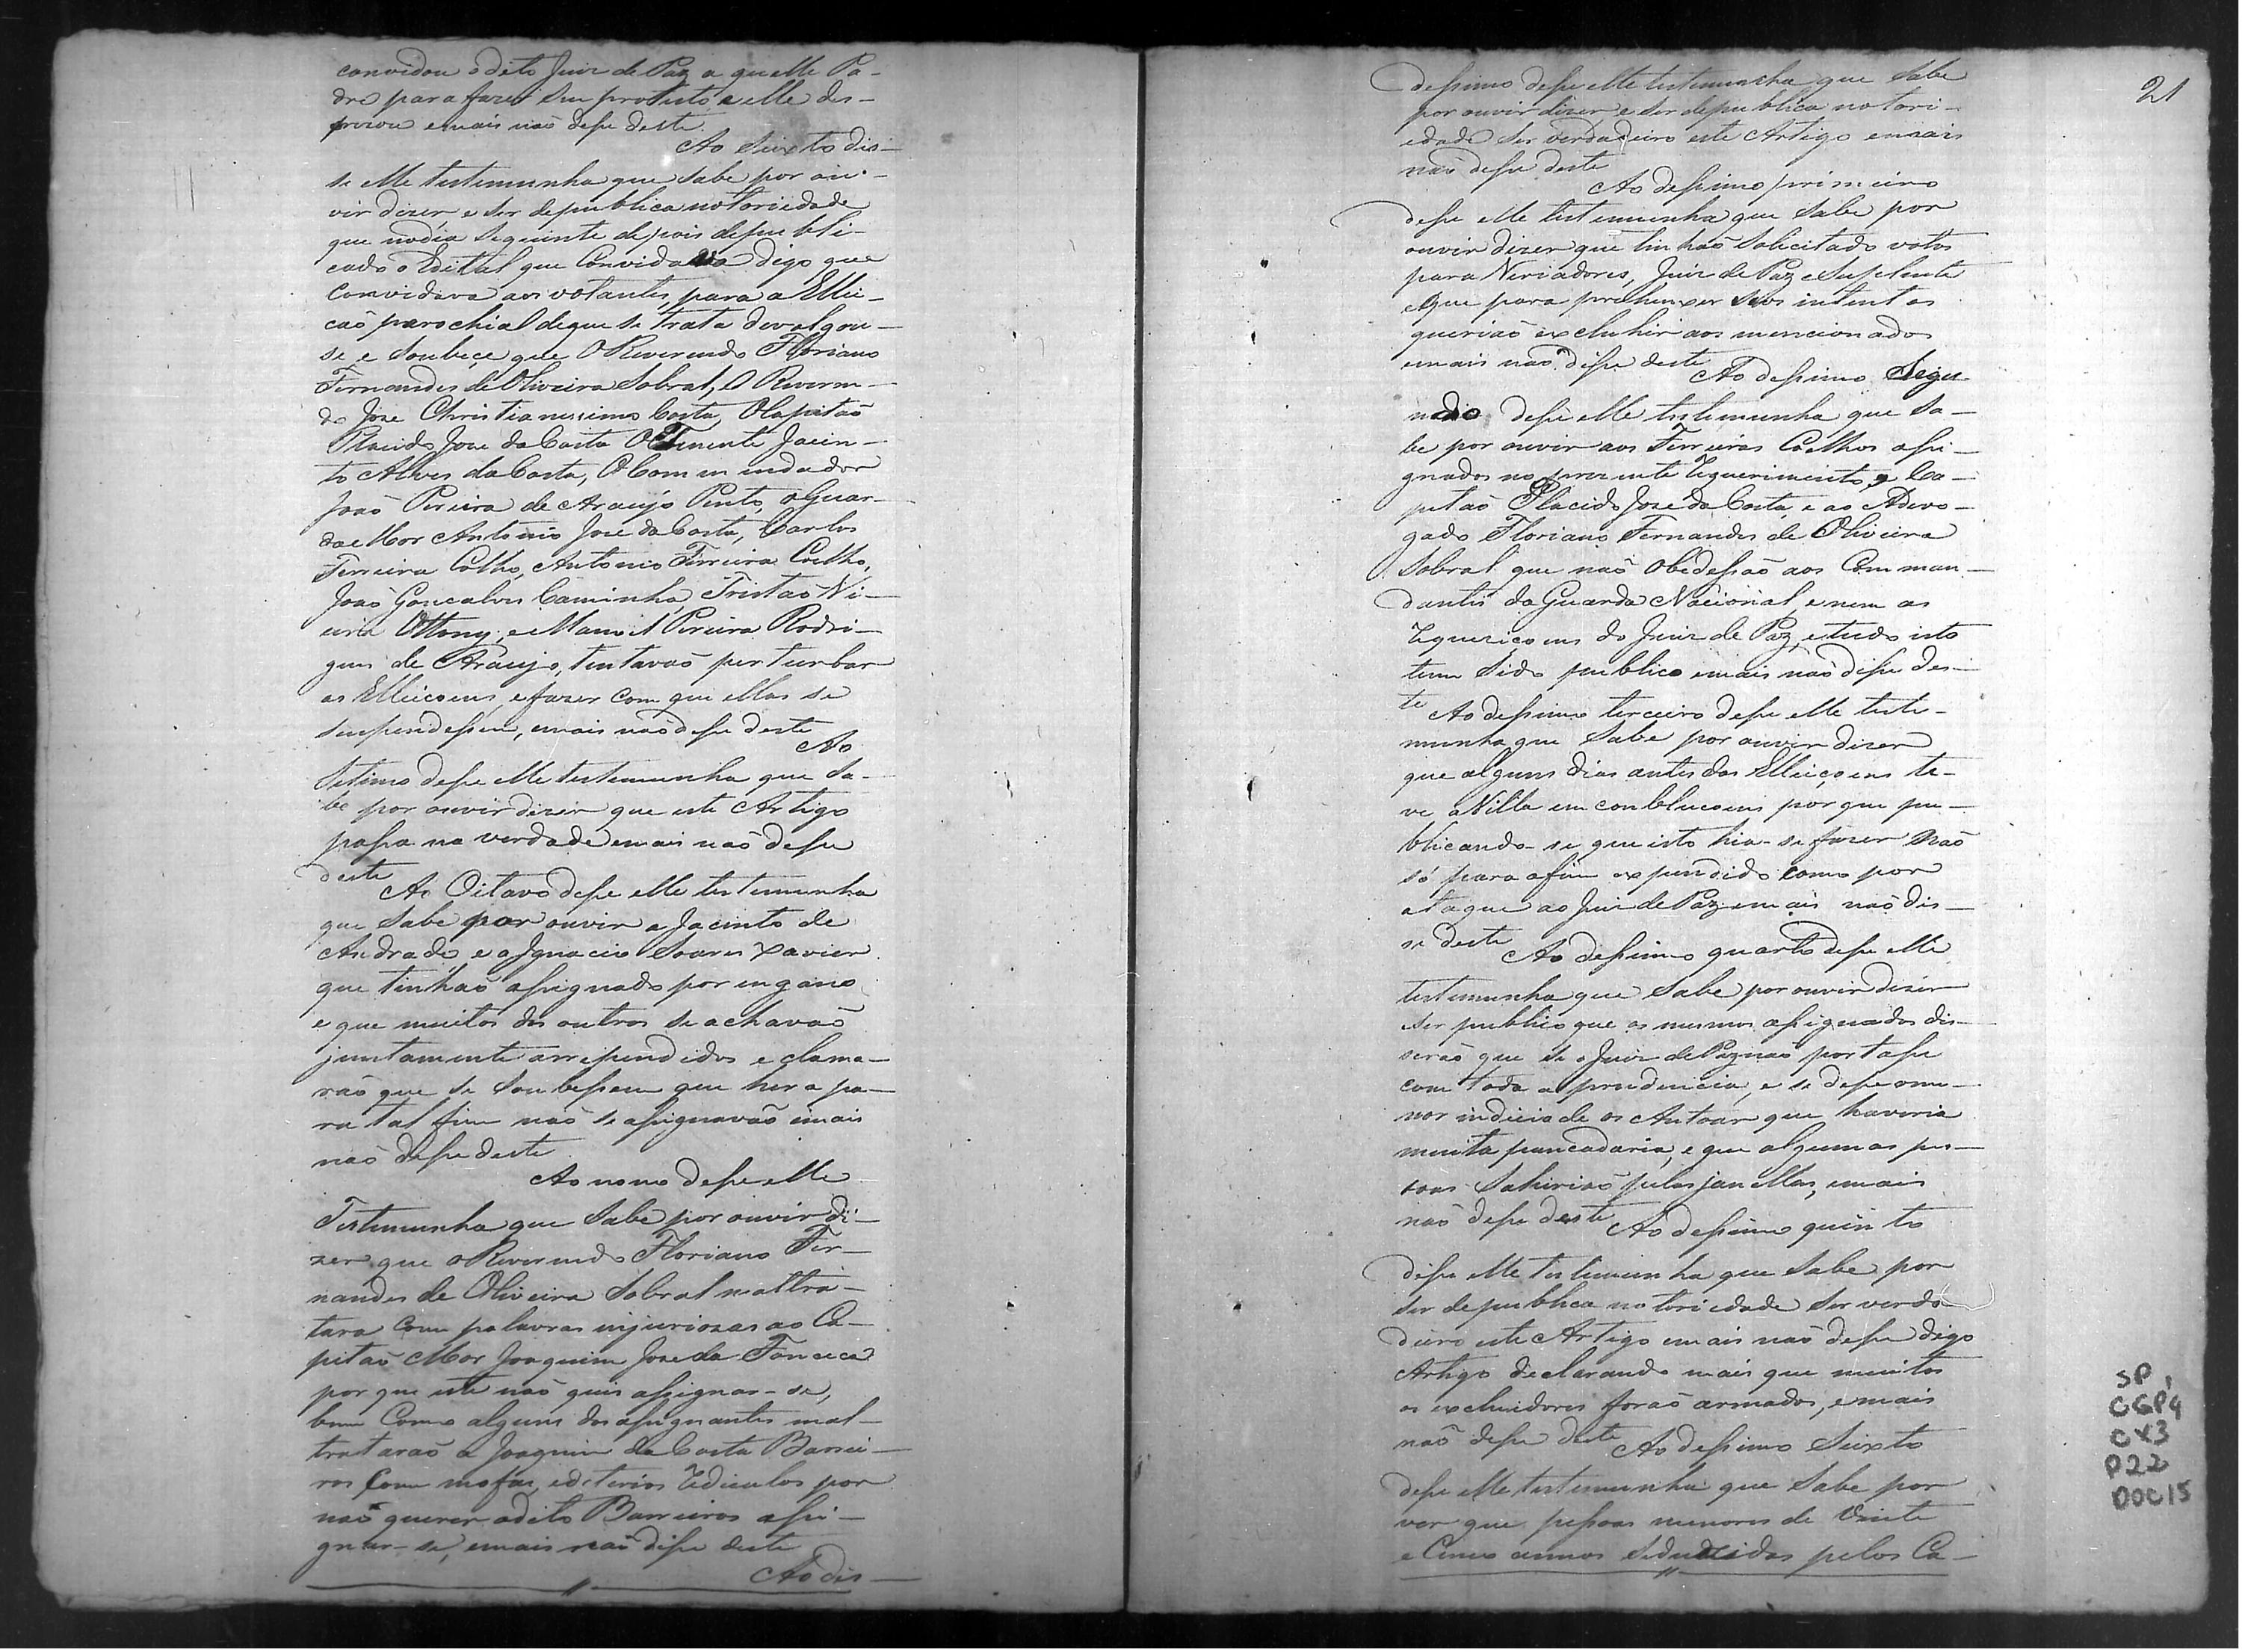 convidou o dito Juiz de Paz a quelle Pa-
dre para fazer seu protesto e elle des-
prezou emais não disse deste.
Ao Seixto dis-
se elle testemunha que Sabe por ou-
vir dizer e ser depublica notoriedade
que nodia Seguinte depois depubli-
cado o Edital que Convidava digo que
Convidava aos votantes, para a Ellei-
caõ parochial deque se trata devolgou-
se e Soubeçe que O Reverendo Floriano
Fernandes de Oliveira Sobral, O Reveren-
do Joze Christianissimo Costa, O Capitaõ
Placido Joze da Costa O Tenente Jacin-
to Alves da Costa, O Commendador
Joaõ Pereira de Araujo Pinto, o Guar-
da eMor Antonio Joze da Costa, Carlos
Ferreira Colho, Antonio Ferreira Coelho,
Joaõ Goncalves Caminha, Tristaõ Vi-
eira Ottony, e Manoel Pereira Rodri-
gues de Araujo, tentavaõ perturbar
as Elleicoens, efazer com que ellas se
suspendessem, emais naõ disse deste
Ao
Setimo disse elle testemunha que Sa-
be por ouvir dizer que este Artigo
passa na verdade emais naõ disse
deste
Ao Oitavo disse elle testemunha
que Sabe por ouvir a Jacinto de
Andrade e a Ignacio Soares Xavier
que tinhaõ assignado por engano
e que muitos dos outros se achavaõ
juntamente arrependidos e clama-
raõ que se Soubessem que hera pa-
ra tal fim naõ se assignavaõ emais
naõ disse deste
Ao nono disse elle
Testemunha que Sabe por ouvir di-
zer que o Reverendo Floriano Fer-
nandes de Oliveira Sobral maltra-
tara Com palavras injuriozas ao Ca-
pitaõ Mor Joaquim Joze da Fonceca
por que este naõ quis assignar-se,
bem Como alguns dos assignantes mal-
trataraõ a Joaquim da Costa Barrei-
ros Com mofas, editerios Rediculos por
naõ querer odito Barreiros assi-
gnar-se, emais naõ disse deste
Ao dis-
21
dessimo disse elle testemunha que Sabe
por ouvir dizer e ser depublica notori-
edade Ser verdadeiro este Artigo emais
naõ disse deste
Ao dessimo primeiro
disse elle testemunha que Sabe por
ouvir dizer que tinhaõ Solicitado votos
para Veriadores, Juiz de Paz e Suplente
eque para prehenxer Seos intentos
queriaõ excluhir aos mencionados
emais naõ disse deste
Ao dessimo Segu-
ndo disse elle testemunha que Sa-
be por ouvir aos Ferreiras Coelhos assi-
gnados no prezente Requerimento, e Ca-
pitaõ Placido Joze da Costa, e ao Advo-
gado Floriano Fernandes de Oliveira
Sobral que naõ Obedessaõ aos Comman-
dantes da Guarda Nacional, e nem as
Requezicoens do Juiz de Paz, etudo isto
tem Sido publico emais naõ disse des-
te
Ao dessimo terceiro disse elle teste-
munha que Sabe por ouvir dizer
que alguns dias antes das Elleiçoens te-
ve a Villa em conblucoens por que pu-
blicando-se que isto hia-se fazer Naõ
só para ofim expendido como por
ataque ao Juiz de Paz emais naõ dis-
se deste
Ao dessimo quarto disse elle
testemunha que Sabe por ouvir dizer
eser publico que os mesmos assignados dis-
seraõ que se o Juiz de Paz naõ portasse
com toda a prudencia, e se desse ome-
nor indicio de os Autoar que haveria
muita pancadaria, e que algumas pes-
soas Sahiriaõ pelas janellas, emais
naõ disse deste
Ao dessimo quinto
disse elle testemunha que Sabe por
ser depublica notoriedade Ser verda-
deiro este Artigo emais naõ disse digo
Artigo declarando mais que muitos
os excluidores foraõ armados, emais
naõ disse deste
Ao dessimo Seixto
disse elle testemunha que Sabe por
ver que pessoas menores de Vinte
e Cinco annos Seduzidas pelos Ca-
SP,
CGP4
CX3
P22
DOC15